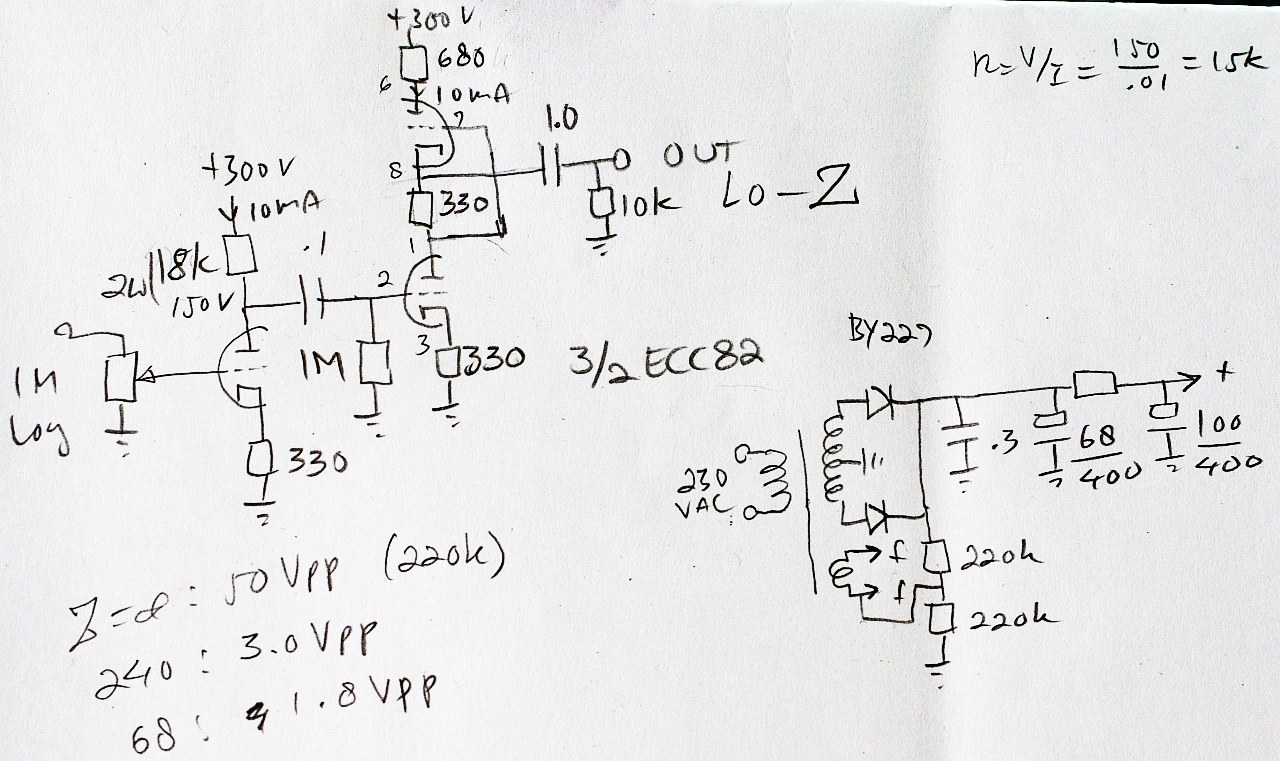 +300V
680
6
10mA
7
8
330
1.0
OUT
LO-Z
10k
+300V
10mA
2W 18k
150V
.1
1
2
3
1M
Log
1M
330
330
3/2 ECC82
R=V/I = 150/.01 = 15k
BY227
+
.3
68/400
100/400
230
VAC
f
f
220k
220k
: 50 VPP (220k)
240 : 3.0 VPP
68 : 1.8 VPP